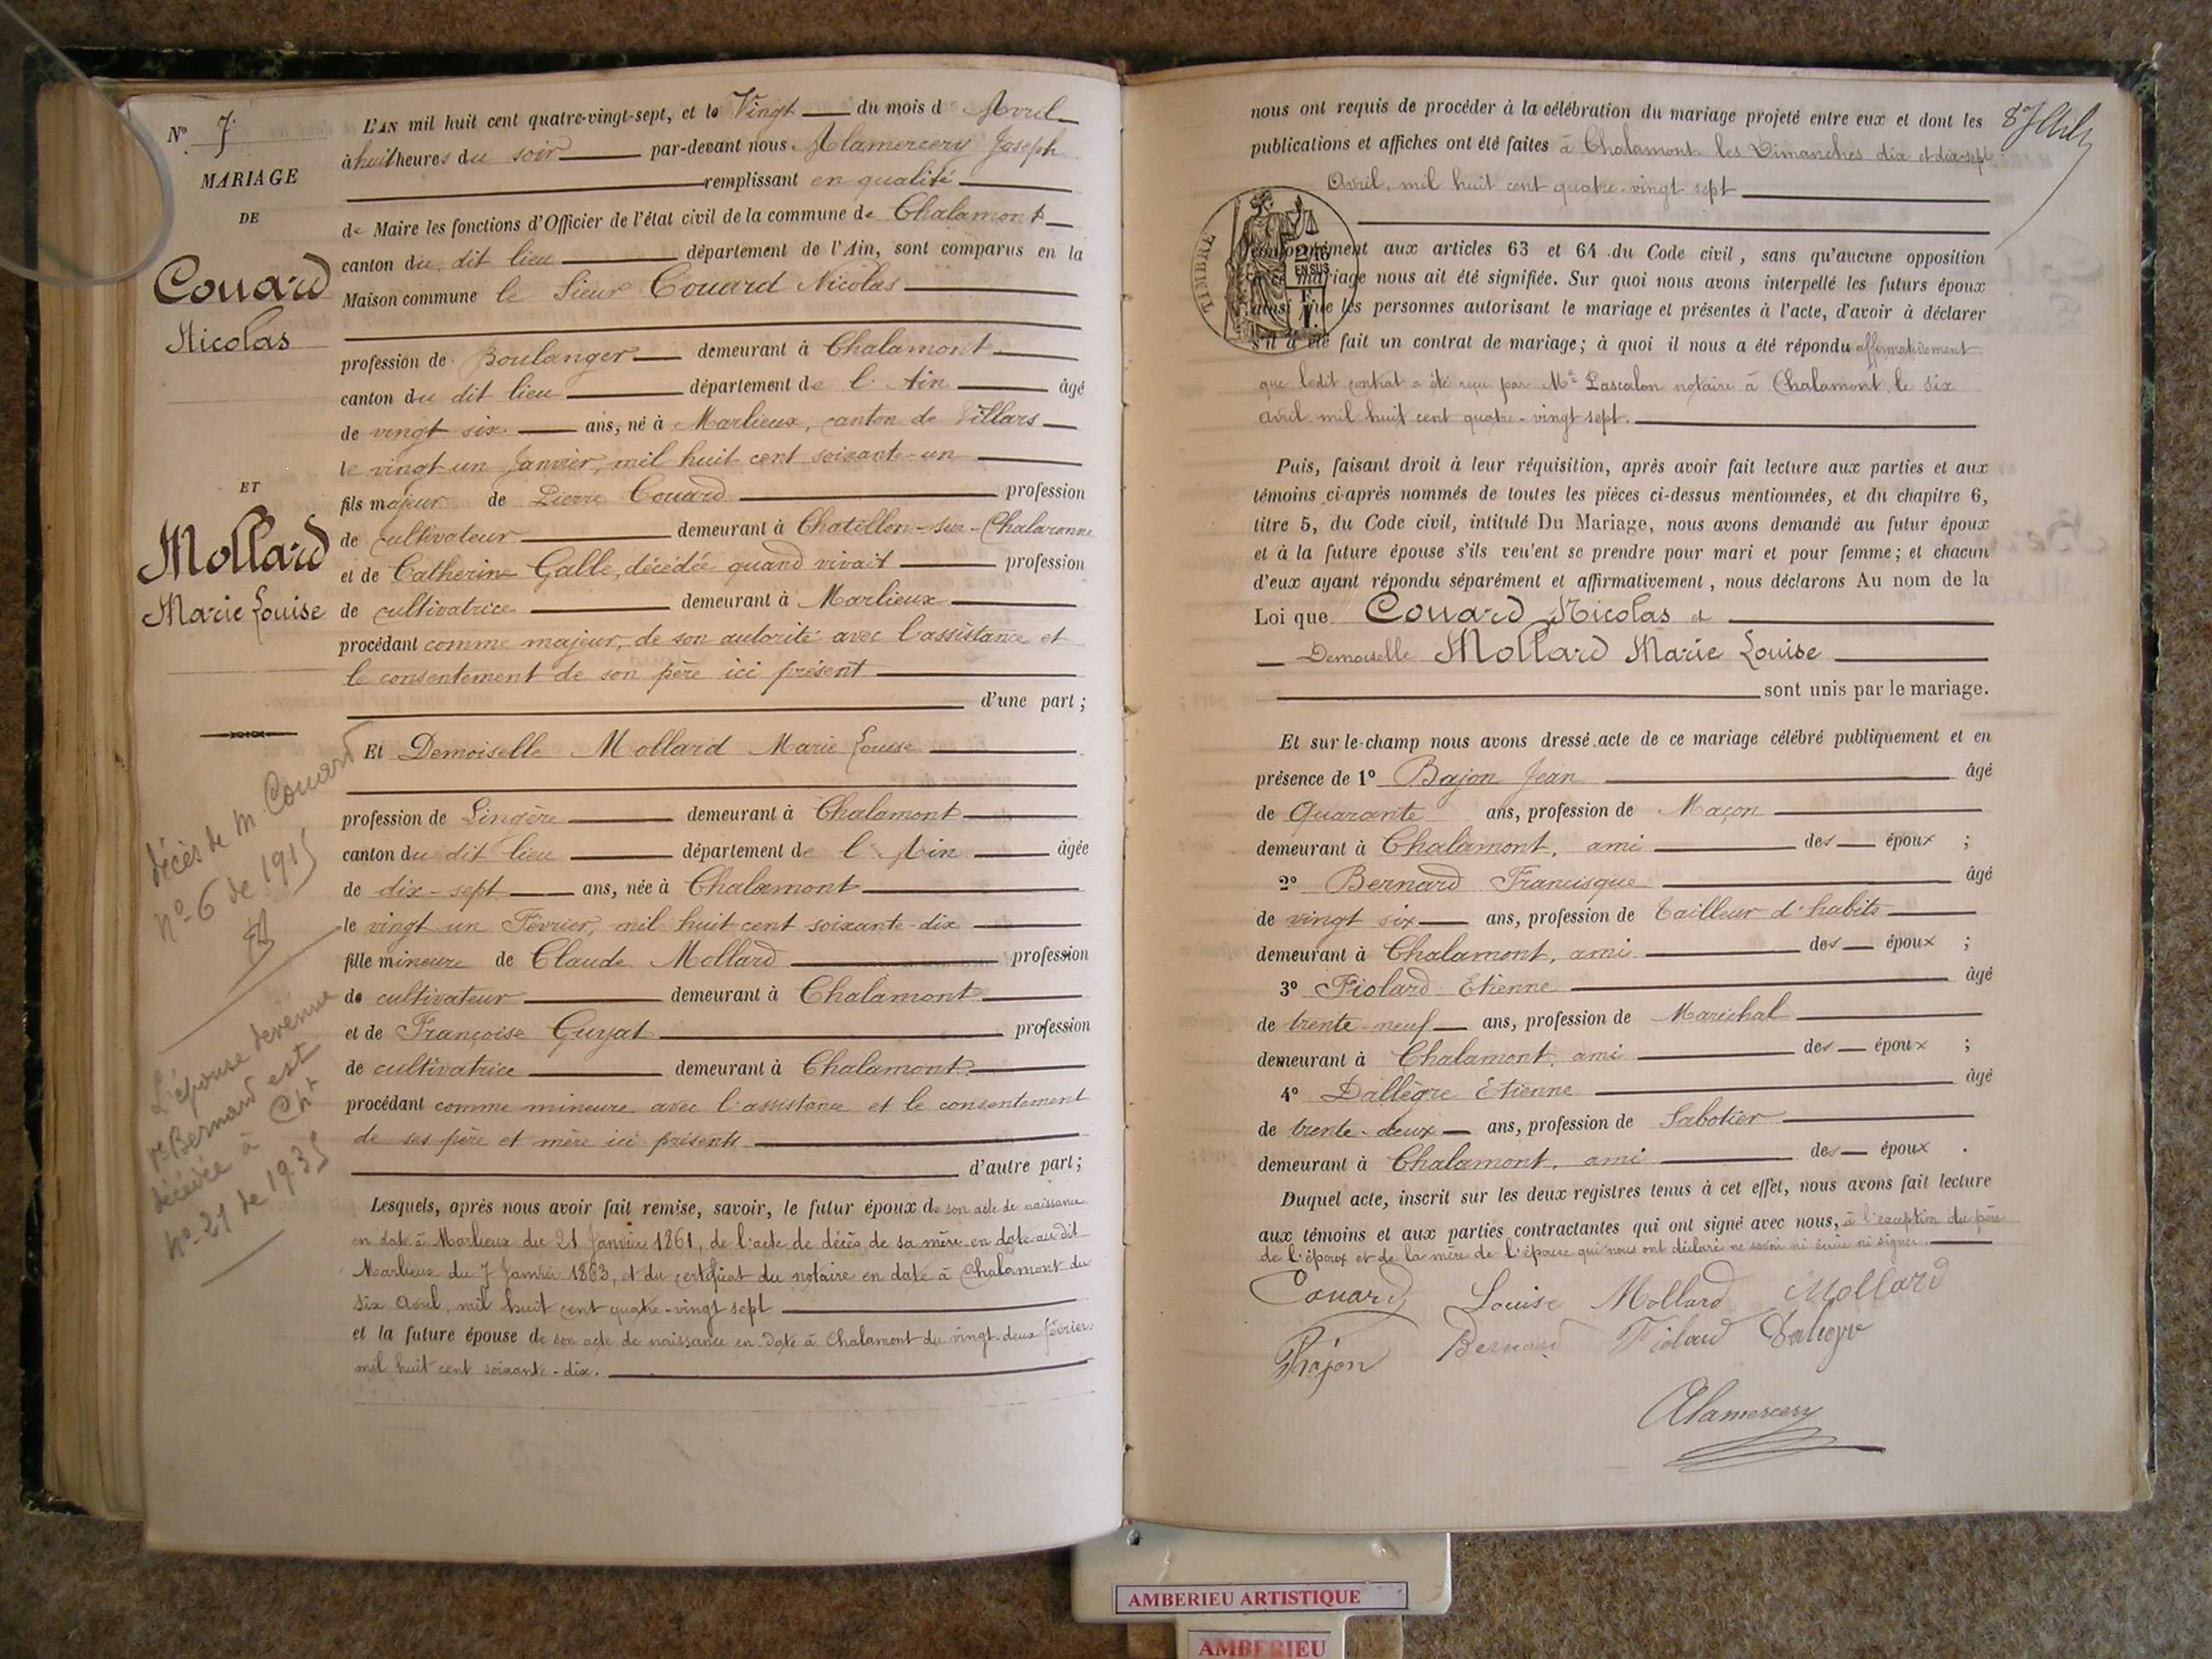 N° 7
MARIAGE
DE
Couard
Nicolas
ET
Mollard
Marie Louise
décès de M. Couard
n° 6 de 1915
L'épouse devenue
Bernard est
décédée à Cht
n° 21 de 1935
L'AN mil huit cent quatre-vingt-sept, et le Vingt du mois d Avril
à huit heures du soir par-devant nous Alamercery Joseph
remplissant en qualité
de Maire les fonctions d'Officier de l'état civil de la commune de Chalamont
canton du dit lieu département de l'Ain, sont comparus en la
Maison commune le Sieur Couard Nicolas
profession de Boulanger demeurant à Chalamont
canton du dit lieu département de l'Ain âgé
de vingt six ans, né à Marlieux, canton de Villars
le vingt un Janvier, mil huit cent soixante-un
fils majeur de Pierre Couard profession
de cultivateur demeurant à Chatillon-sur-Chalaronne
et de Catherine Galle, décédée quand vivait profession
de cultivatrice demeurant à Marlieux
procédant comme majeur, de son autorité avec l'assistance et
le consentement de son père ici présent
d'une part ;
Et Demoiselle Mollard Marie Louise
profession de Lingère demeurant à Chalamont
canton du dit lieu département de l'Ain âgée
de dix-sept ans, née à Chalamont
le vingt un Février, mil huit cent soixante-dix
fille mineure de Claude Mollard profession
de cultivateur demeurant à Chalamont
et de Françoise Guyat profession
de cultivatrice demeurant à Chalamont
procédant comme mineure avec l'assistance et le consentement
de ses père et mère ici présents
d'autre part;
Lesquels, après nous avoir fait remise, savoir, le futur époux de son acte de naissance
en date à Marlieux du 21 Janvier 1861, de l'acte de décès de sa mère en date au dit
Marlieux du 7 Janvier 1863, et du certificat du notaire en date à Chalamont du
six avril, mil huit cent quatre-vingt sept
et la future épouse de son acte de naissance en date à Chalamont du vingt-deux février
mil huit cent soixante-dix.
nous ont requis de procéder à la célébration du mariage projeté entre eux et dont les
publications et affiches ont été faites à Chalamont les Dimanches dix et dix-sept
Avril, mil huit cent quatre-vingt sept
TIMBRE
EN SUS
conformément aux articles 63 et 64 du Code civil, sans qu'aucune opposition
mariage nous ait été signifiée. Sur quoi nous avons interpellé les futurs époux
ainsi que les personnes autorisant le mariage et présentes à l'acte, d'avoir à déclarer
s'il a été fait un contrat de mariage; à quoi il nous a été répondu affirmativement
que ledit contrat a été reçu par Me Lascalon notaire à Chalamont, le six
avril mil huit cent quatre-vingt sept.
Puis, faisant droit à leur réquisition, après avoir fait lecture aux parties et aux
témoins ci-après nommés de toutes les pièces ci-dessus mentionnées, et du chapitre 6,
titre 5, du Code civil, intitulé Du Mariage, nous avons demandé au futur époux
et à la future épouse s'ils veu'ent se prendre pour mari et pour femme; et chacun
d'eux ayant répondu séparément et affirmativement, nous déclarons Au nom de la
Loi que Couard Nicolas et
Demoiselle Mollard Marie Louise
sont unis par le mariage.
Et sur le-champ nous avons dressé acte de ce mariage célébré publiquement et en
présence de 1° Bajon Jean âgé
de Quarante ans, profession de Maçon
demeurant à Chalamont, ami des époux ;
2° Bernard Francisque âgé
de vingt six ans, profession de tailleur d'habits
demeurant à Chalamont, ami des époux ;
3° Fiolard Etienne âgé
de trente-neuf ans, profession de Maréchal
demeurant à Chalamont, ami des époux ;
4° Dallègre Etienne âgé
de trente-deux ans, profession de Sabotier
demeurant à Chalamont, ami des époux .
Duquel acte, inscrit sur les deux registres tenus à cet effet, nous avons fait lecture
aux témoins et aux parties contractantes qui ont signé avec nous, à l'exception du père
de l'époux et de la mère de l'épouse qui nous ont déclaré ne savoir ni écrire ni signer.
Couard Louise Mollard Mollard
Bajon Bernard Fiolard
Alamercery
AMBERIEU ARTISTIQUE
AMBERIEU